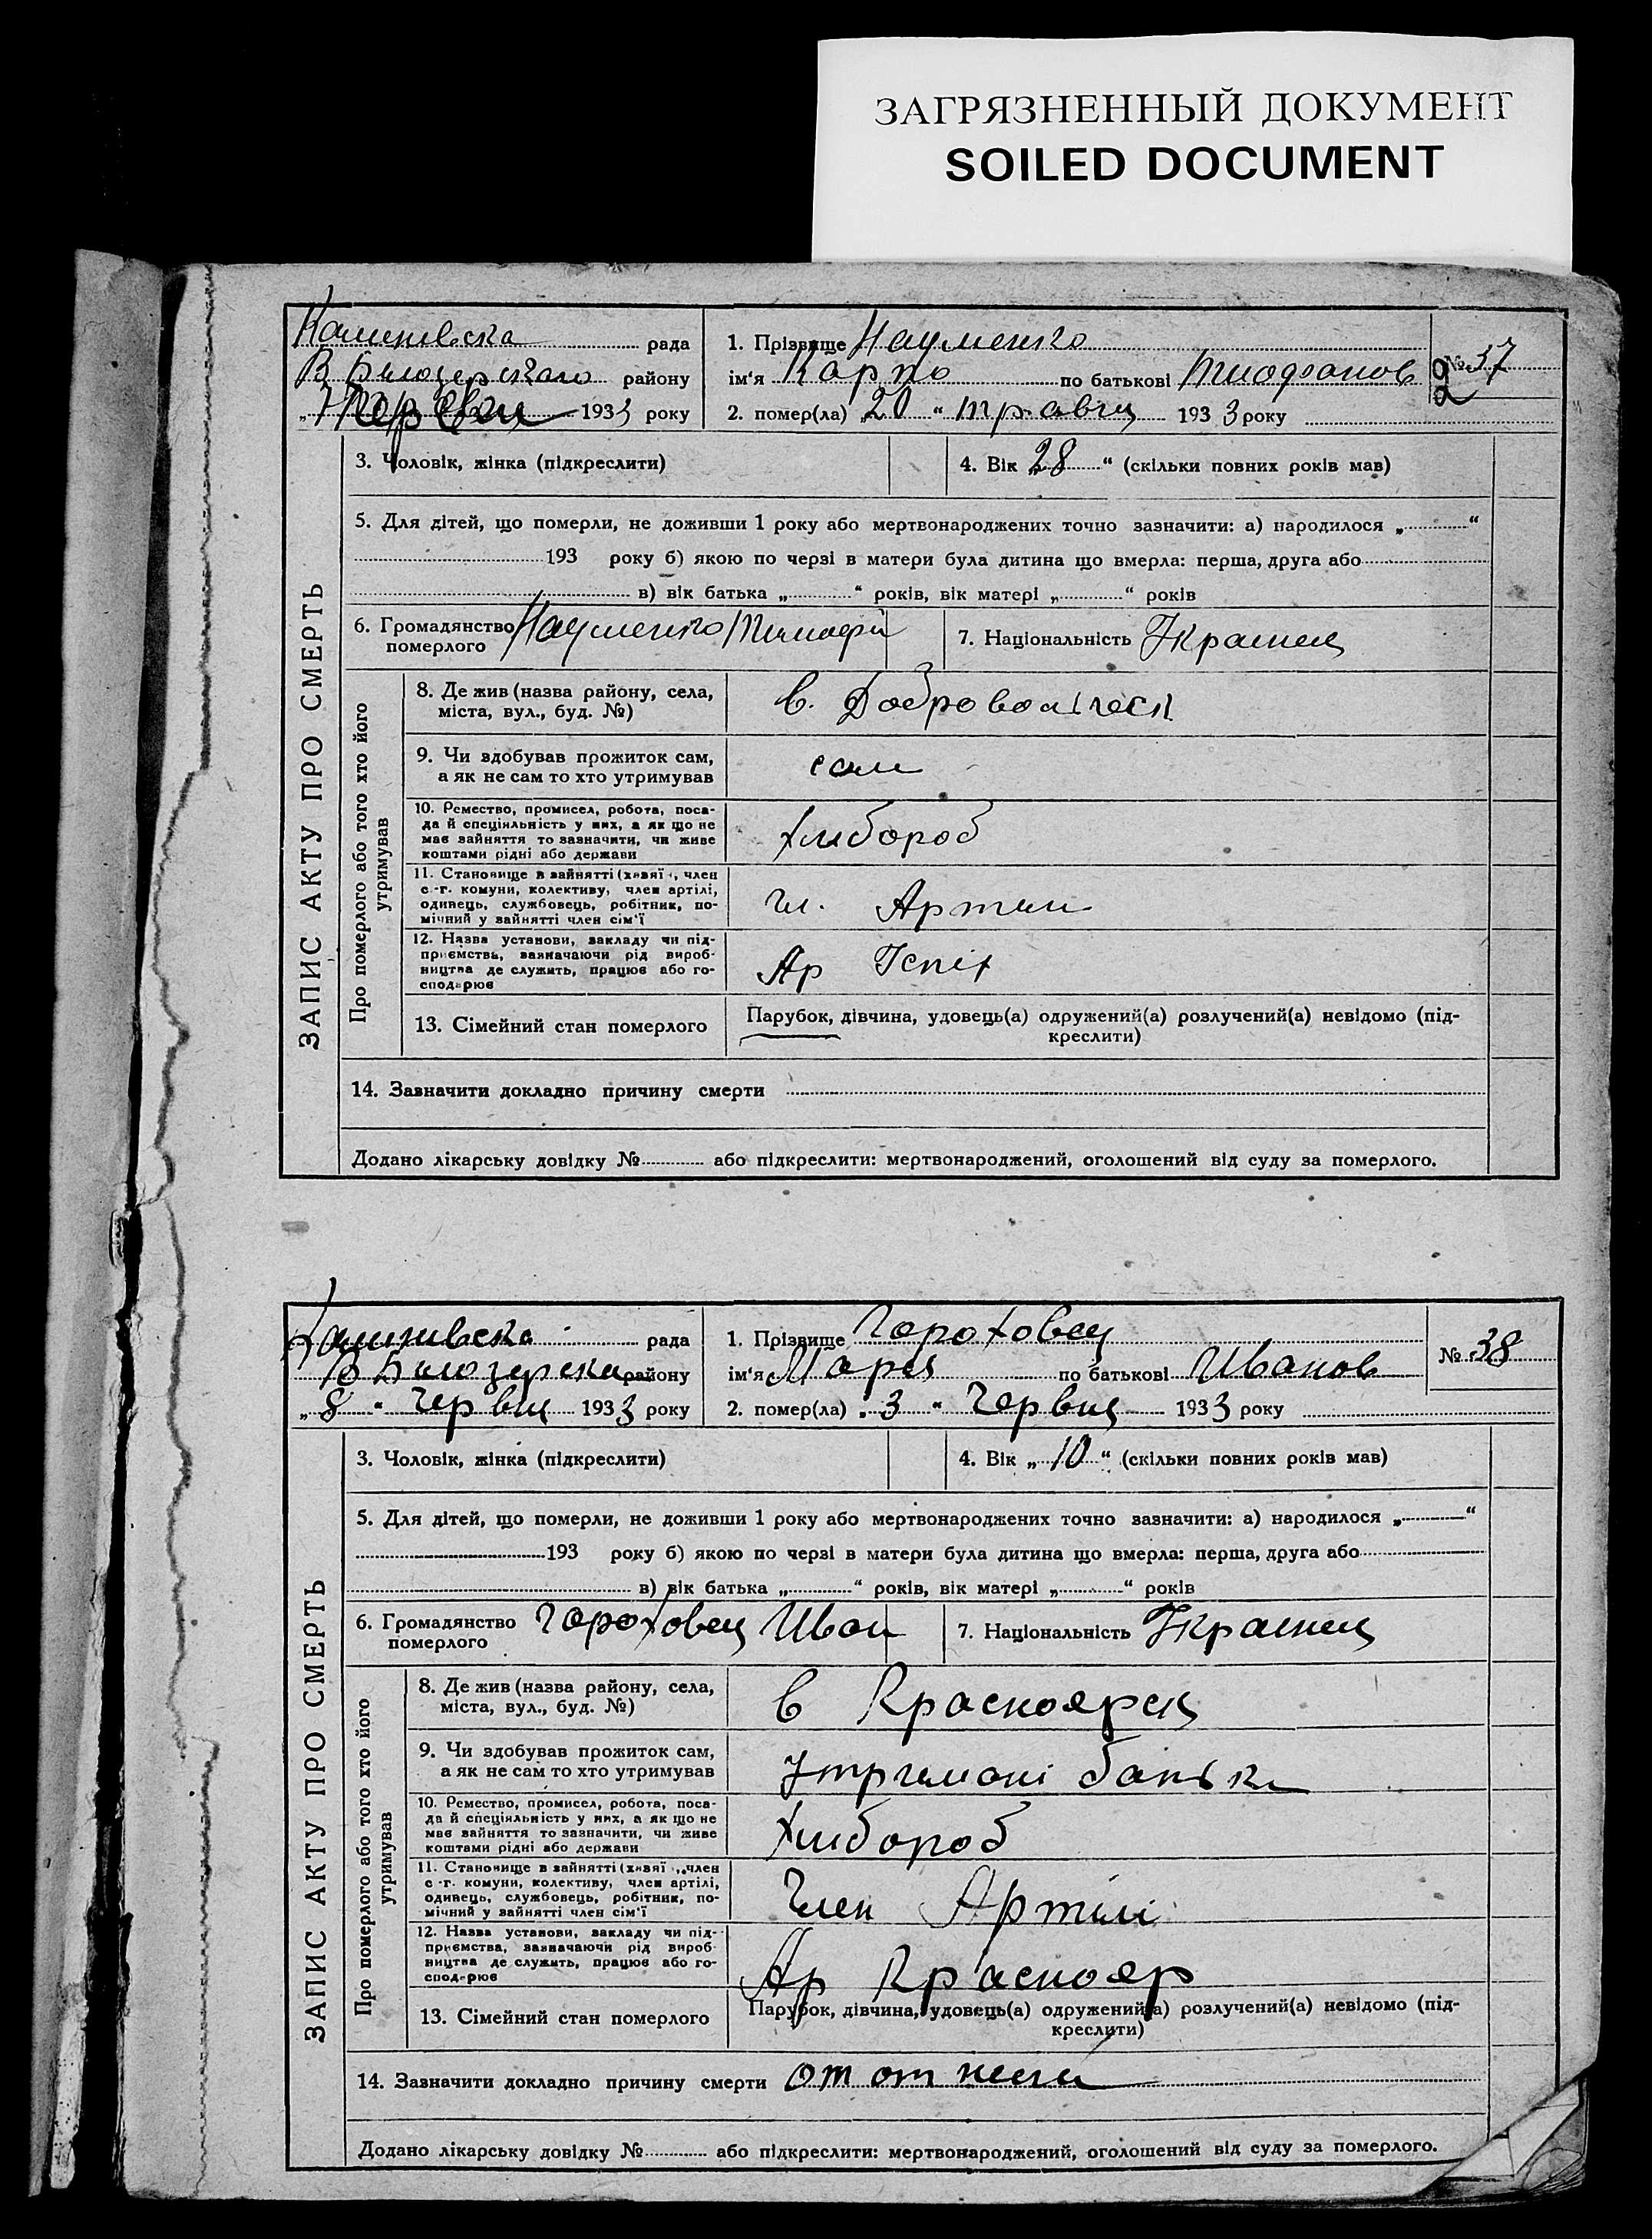 ЗАГРЯЗНЕННЫЙ ДОКУМЕНТ
SOILED DOCUMENT
рада
В району
1933 року
1. Прізвище Науменко
ім'я Карпо по батькові
2. помер(ла) „20“ травец 1933 року
№ 37
29
ЗАПИС АКТУ ПРО СМЕРТЬ
3. Чоловік, жінка (підкреслити)
4. Вік „28“ (скільки повних років мав)
5. Для дітей, що померли, не доживши 1 року або мертвонароджених точно зазначити: а) народилося „ “
193 року б) якою по черзі в матери була дитина що вмерла: перша, друга або
в) вік батька „ “ років, вік матері „ “ років
6. Громадянство Науменко
померлого
7. Національність Украинец
Про померлого або того хто його
утримував
8. Де жив (назва району, села,
міста, вул., буд. №)
в.
9. Чи здобував прожиток сам,
а як не сам то хто утримував
сам
10. Ремество, промисел, робота, поса-
да й спеціяльність у них, а як що не
має зайняття то зазначити, чи живе
коштами рідні або держави
хлибороб
11. Становище в зайнятті (хазяї , член
с.-г. комуни, колективу, член артілі,
одинець, службовець, робітник, по-
мічний у зайнятті член сім'ї
чл. Артили
12. Назва установи, закладу чи під-
приємства, зазначаючи рід вироб-
ництва де служить, працює або го-
сподарює
Ар Успіх
13. Сімейний стан померлого
Парубок, дівчина, удовець(а) одружений(а) розлучений(а) невідомо (під-
креслити)
14. Зазначити докладно причину смерти
Додано лікарську довідку № або підкреслити: мертвонароджений, оголошений від суду за померлого.
рада
В Билозерска району
„8“ Червец 1933 року
1. Прізвище Гороховец
ім'я Мария по батькові Иванов
2. помер(ла) „3“ Червец 1933 року
№ 38
ЗАПИС АКТУ ПРО СМЕРТЬ
3. Чоловік, жінка (підкреслити)
4. Вік „10“ (скільки повних років мав)
5. Для дітей, що померли, не доживши 1 року або мертвонароджених точно зазначити: а) народилося „ “
193 року б) якою по черзі в матери була дитина що вмерла: перша, друга або
в) вік батька „ “ років, вік матері „ “ років
6. Громадянство Гороховец Иван
померлого
7. Національність Украинец
Про померлого або того хто його
утримував
8. Де жив (назва району, села,
міста, вул., буд. №)
в Красноярск
9. Чи здобував прожиток сам,
а як не сам то хто утримував
утримані батька
10. Ремество, промисел, робота, поса-
да й спеціяльність у них, а як що не
має зайняття то зазначити, чи живе
коштами рідні або держави
хлибороб
11. Становище в зайнятті (хазяї , член
с.-г. комуни, колективу, член артілі,
одинець, службовець, робітник, по-
мічний у зайнятті член сім'ї
Член Артілі
12. Назва установи, закладу чи під-
приємства, зазначаючи рід вироб-
ництва де служить, працює або го-
сподарює
Ар Краснояр
13. Сімейний стан померлого
Парубок, дівчина, удовець(а) одружений(а) розлучений(а) невідомо (під-
креслити)
14. Зазначити докладно причину смерти от
Додано лікарську довідку № або підкреслити: мертвонароджений, оголошений від суду за померлого.